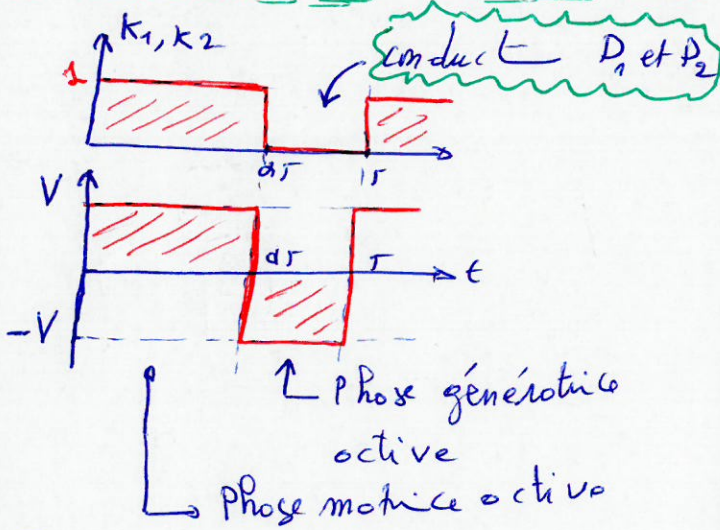 K1, K2
conduct D1 et D2
1
αT
T
V
αT
T
t
-V
Phase génératrice
active
Phase motrice active